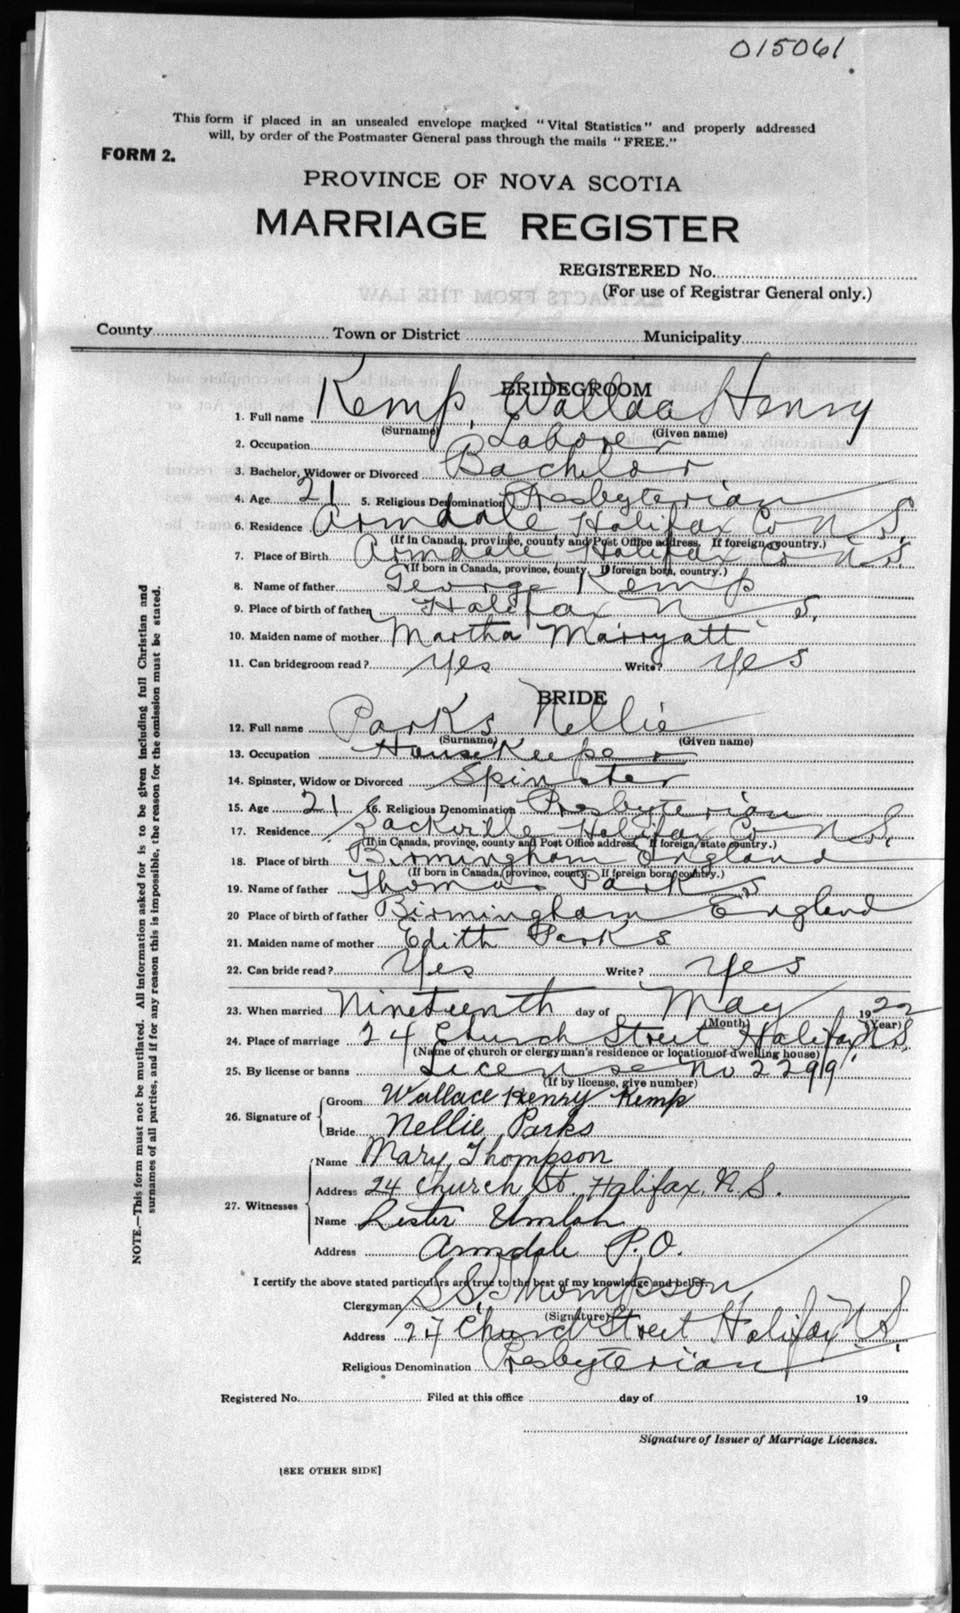 015061
This form if placed in an unsealed envelope marked "Vital Statistics" and properly addressed
will, by order of the Postmaster General pass through the mails "FREE."
FORM 2.
PROVINCE OF NOVA SCOTIA
MARRIAGE REGISTER
REGISTERED No.
(For use of Registrar General only.)
County Town or District Municipality
BRIDEGROOM
1. Full name Kemp, Wallace Henry
(Surname) (Given name)
2. Occupation Laborer
3. Bachelor, Widower or Divorced Bachelor
4. Age 21 5. Religious Denomination Presbyterian
6. Residence Armdale Halifax Co N S.
(If in Canada, province, county and Post Office address. If foreign, country.)
7. Place of Birth Armdale Halifax Co N S.
(If born in Canada, province, county. If foreign born, country.)
8. Name of father George Kemp
9. Place of birth of father Halifax N S.
10. Maiden name of mother Martha Marryatt
11. Can bridegroom read? Yes Write? Yes
BRIDE
12. Full name Parks Nellie
(Surname) (Given name)
13. Occupation HouseKeeper
14. Spinster, Widow or Divorced Spinster
15. Age 21 16. Religious Denomination Presbyterian
17. Residence Sackville Halifax Co N S.
(If in Canada, province, county and Post Office address. If foreign, state country.)
18. Place of birth Birmingham England
(If born in Canada, province, county. If foreign born, country.)
19. Name of father Thomas Parks
20 Place of birth of father Birmingham England
21. Maiden name of mother Edith Parks
22. Can bride read? Yes Write? Yes
23. When married Nineteenth day of May 1922
(Month) (Year)
24. Place of marriage 24 Church Street Halifax N.S.
(Name of church or clergyman's residence or location of dwelling house)
25. By license or banns License No 22919
(If by license, give number)
26. Signature of Groom Wallace Henry Kemp
Bride Nellie Parks
27. Witnesses Name Mary Thompson
Address 24 Church St. Halifax, N.S.
Name Lester Umlah
Address Armdale P.O.
I certify the above stated particulars are true to the best of my knowledge and belief.
Clergyman Thompson
(Signature)
Address 24 Church Street Halifax N.S.
Religious Denomination Presbyterian
Registered No. Filed at this office day of 19
Signature of Issuer of Marriage Licenses.
[SEE OTHER SIDE]
NOTE.—This form must not be mutilated. All information asked for is to be given including full Christian and
surnames of all parties, and if for any reason this is impossible, the reason for the omission must be stated.